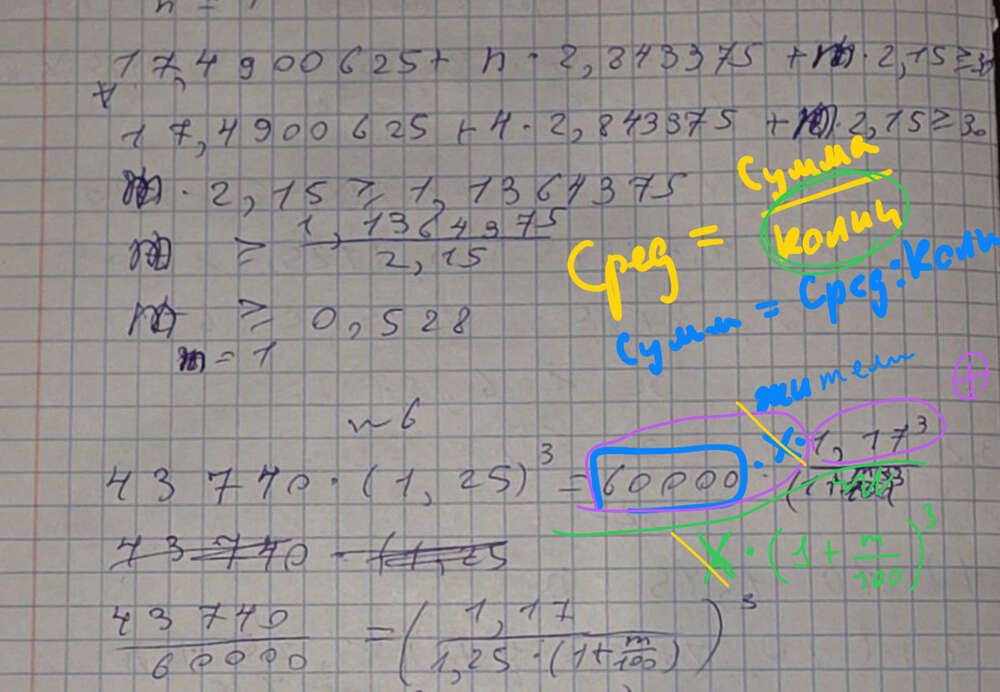 17,4900625 + n · 2,843375 + m · 2,15 ≥ 30
17,4900625 + 4 · 2,843375 + m · 2,15 ≥ 30
m · 2,15 ≥ 1,1364375
m ≥ 1,1364375 / 2,15
m ≥ 0,528
m = 1
Сред = Сумма / колич
Сумм = Сред · Колич
жители
~ 6
43 740 · (1,25)³ = 60000 · X · 1,17³
X · (1 + m/100)³
43 740 / 60000 = (1,17 / 1,25 · (1 + m/100))³